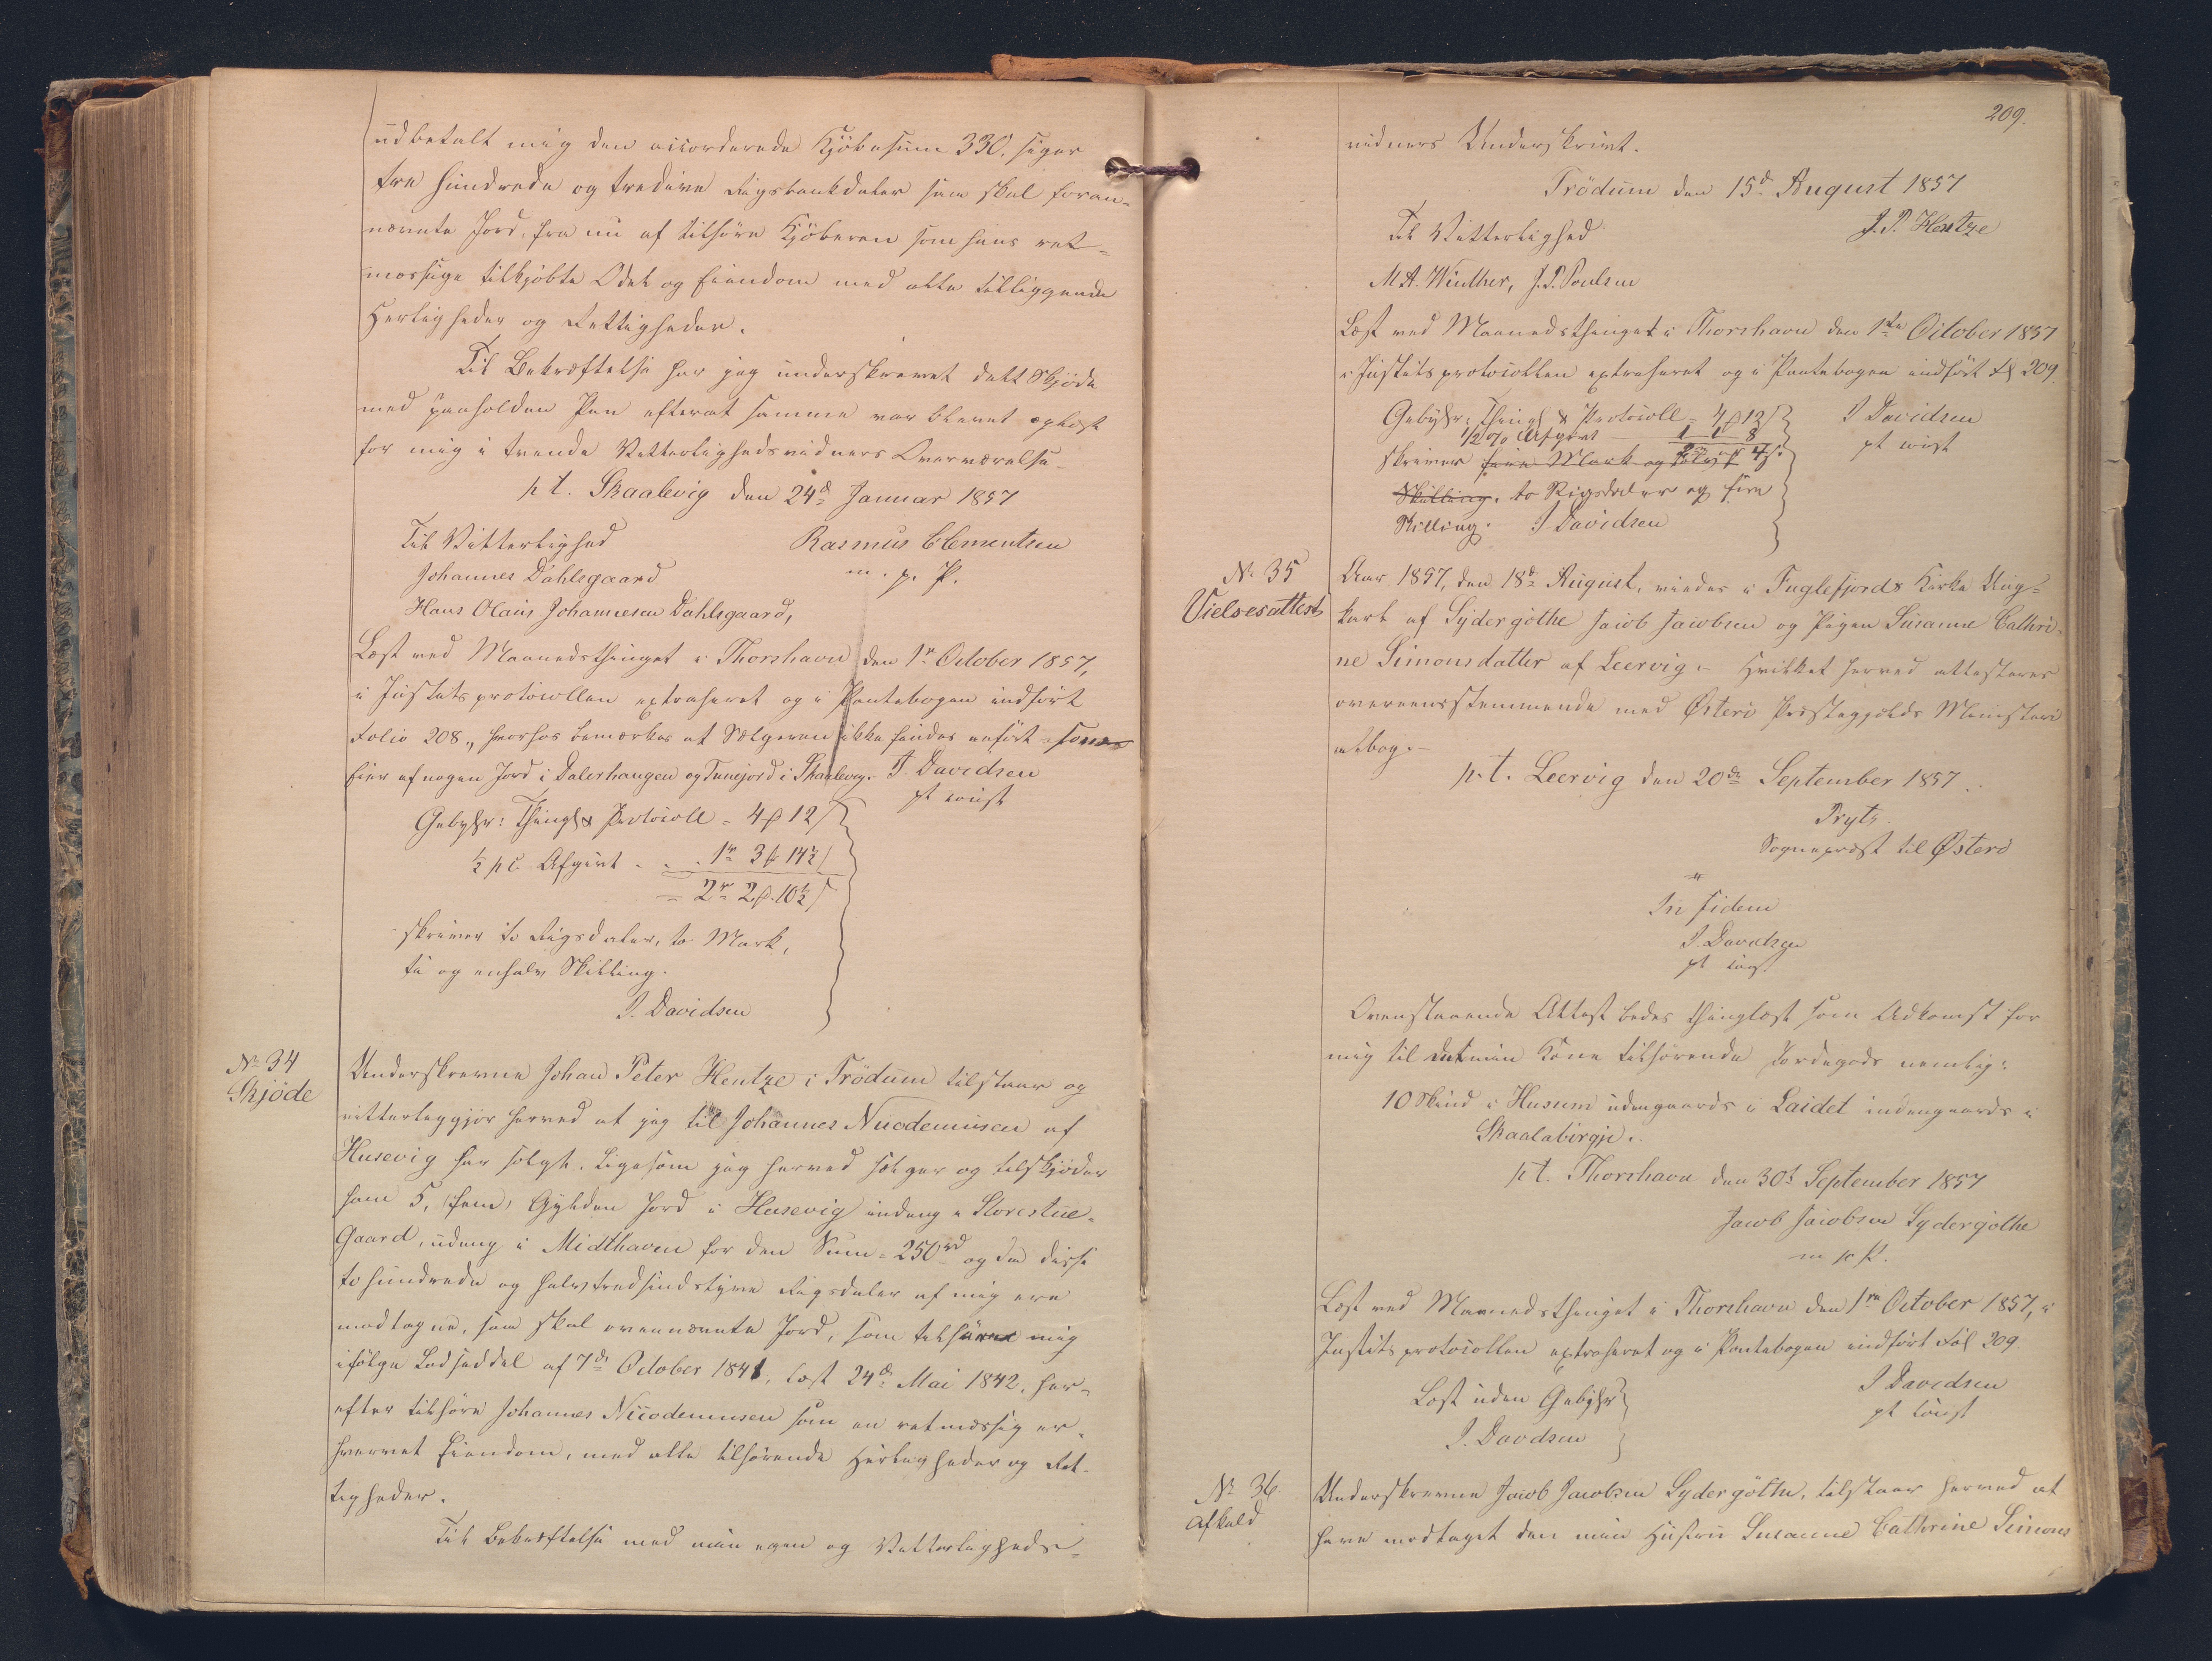 udbetalt mig den accorderede Kjöbesum 330, siger
tre hundrede og tredive Rigsbankdaler saa skal foran-
nævnte Jord, fra nu af tilhöre Kjöberen som hans ret-
mæssige tilkjöbte Odel og Eiendom med alle tilliggende
Herligheder og Rettigheder.
Til Bekræftelse har jeg underskrevet dette Skjöde
med paaholden Pen efterat samme var blevet oplæst
for mig i tvende Vitterlighedsvidners Overværelse.
p t. Skaalevig den 24d Januar 1857
Til Vitterlighed
Rasmus Clementsen
Johannes Dahlsgaard
m. p. P.
Hans Olaus Johannesen Dahlsgaard,
Læst ved Maanedsthinget i Thorshavn den 1r October 1857,
i Justitsprotocollen extraheret og i Pantebogen indfört
Folio 208., hvorhos bemærkes at Sælgeren ikke findes anfört som
Eier af nogen Jord i Dalerhaugen og Tunejord i Skaalevig. J. Davidsen
pt const
Gebyhr: Thingl & Protocoll = 4 ß 12 /
½ pC Afgivt . . . 1r 3 ß 14½ /
= 2r 2 ß 10½ /
skriver to Rigsdaler, to Mark,
ti og enhalv Skilling.
J. Davidsen
No 34
Skjöde
Underskrevne Johan Peter Hentze i Trödum tilstaar og
vitterliggjör herved at jeg til Johannes Nicodemusen af
Husevig har solgt, ligesom jeg herved sælger og tilskjöder
ham 5, (fem) Gylden Jord i Husevig indeng i Storestue-
Gaard, udeng i Midthaven for den Sum = 250rd og da disse
to hundrede og halvtredsindstyve Rigsdaler af mig ere
modtagne, saa skal ovennævnte Jord, som tilhörer mig
ifölge Lodseddel af 7de October 1841, læst 24de Mai 1842, her-
efter tilhöre Johannes Nicodemusen som en retmæssig er-
hvervet Eiendom, med alle tilhörende Herligheder og Ret-
tigheder.
Til Bekræftelse med min egen og Vitterligheds-
209.
vidners Underskrivt.
Trödum den 15d August 1857
Til Vitterlighed
J. P. Hentze
M A. Winther, J. P. Poulsen
Læst ved Maanedsthinget i Thorshavn den 1ste October 1857
i Justitsprotocollen extraheret og i Pantebogen indfört Fol 209
Gebyhr: Thingl & Protocoll = 4 ß 12 /
J Davidsen
1/2 % Afgivt — 1 1 8
pt const
skriver fire Mark og tolv 2 ß 4 /.
Skilling. to Rigsdaler og fire
Skilling. J Davidsen
No 35
Vielsesattest
Aar 1857, den 18de August, viedes i Fuglefjords Kirke Ung-
karl af Sydergöthe Jacob Jacobsen og Pigen Susanne Cathri-
ne Simonsdatter af Leervig. - Hvilket herved attesteres
overeensstemmende med Österö Præstegjelds Ministeri
albog. -
p. t. Leervig den 20de September 1857.
Prytz.
Sognepræst til Österö
In fidem
J. Davidsen
pt const
Ovenstaaende Attest bedes thinglæst som Adkomst for
mig til det min Kone tilhörende Jordegods nemlig:
10 Skind i Husum udengaards i Laidet indengaards i
Skaalabirgje.
pt. Thorshavn den 30t September 1857
Jacob Jacobsen Sydergöthe
m p P.
Læst ved Maanedsthinget i Thorshavn den 1ste October 1857, i
Justitsprotocollen extraheret og i Pantebogen indfört Fol 209
J Davidsen
Læst uden Gebyhr
pt const
J. Davidsen
No 36
Afkald
Underskrevne Jacob Jacobsen Sydergöthe, tilstaar herved at
have modtaget den min Hustru Susanne Cathrine Simons